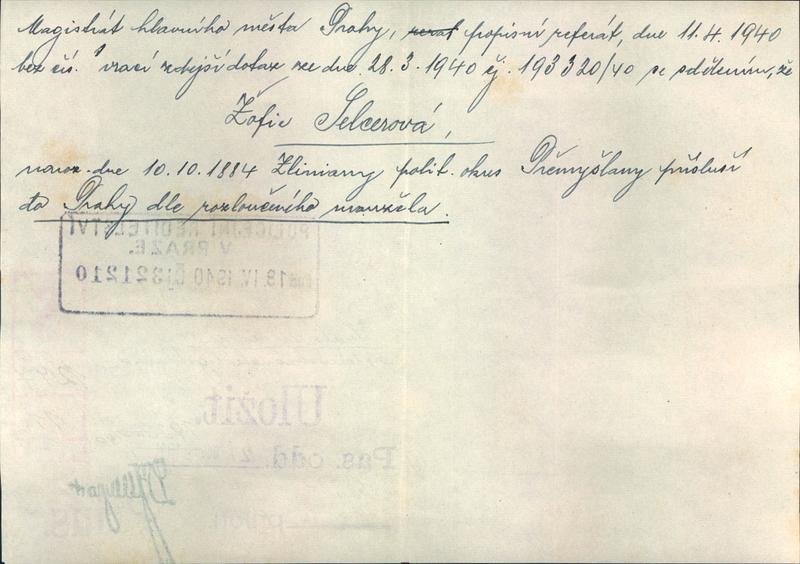 Magistrát hlavního města Prahy, popisní referát, dne 11.4.1940
bez čís. vrací zdejší dotaz ze dne 28.3.1940 čj. 193320/40 se sdělením, že
Žofie Selcerová,
naroz. dne 10.10.1884 Zliniany polit. okres Přemyšlany přísluší
do Prahy dle rozloučeného manžela.
POLICEJNÍ ŘEDITELSTVÍ
V PRAZE.
19.IV.1940 Čj321210
Uložit.
Pas. odd.